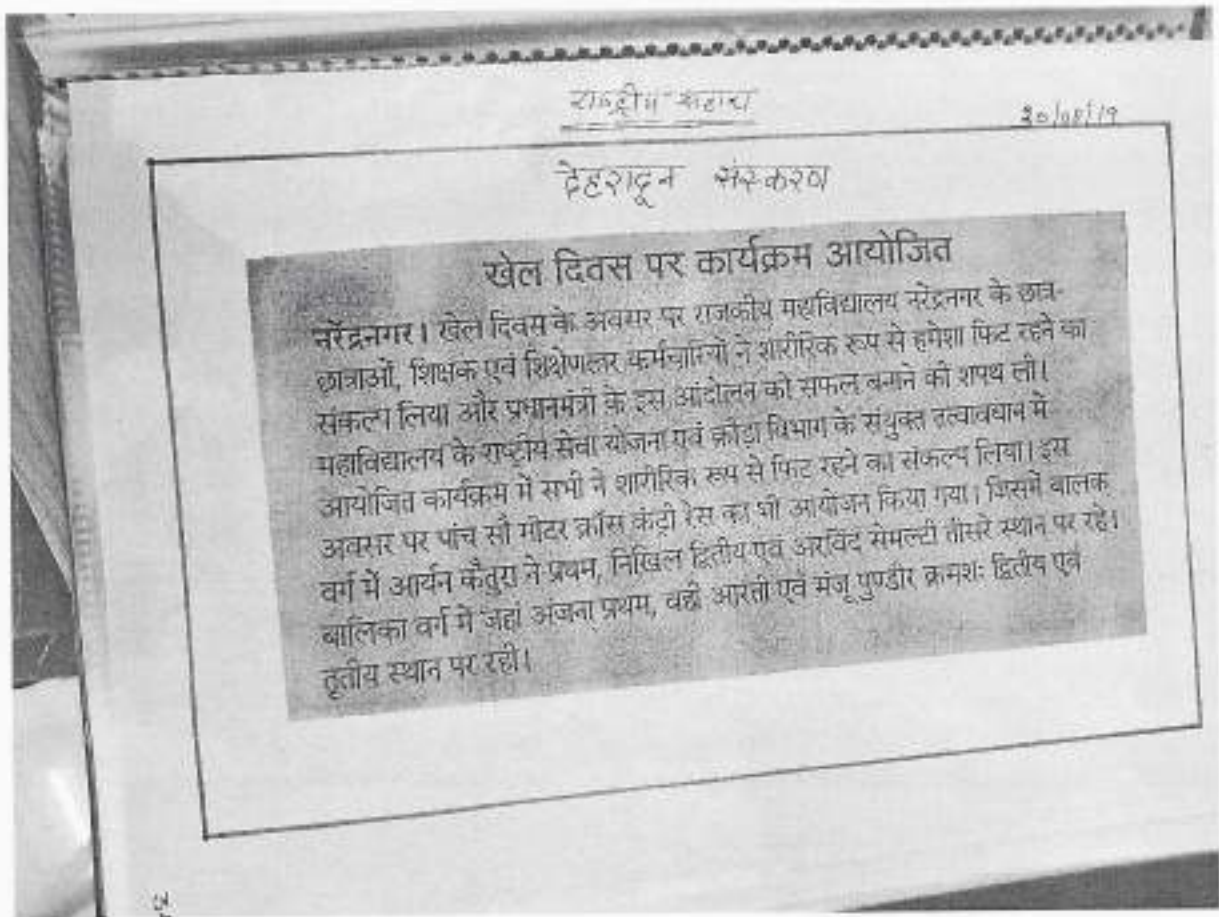 राष्ट्रीय सहारा
30/08/19
देहरादून संस्करण
खेल दिवस पर कार्यक्रम आयोजित
नरेंद्रनगर। खेल दिवस के अवसर पर राजकीय महाविद्यालय नरेंद्रनगर के छात्र-
छात्राओं, शिक्षक एवं शिक्षेणत्तर कर्मचारियों ने शारीरिक रूप से हमेशा फिट रहने का
संकल्प लिया और प्रधानमंत्री के इस आंदोलन को सफल बनाने की शपथ ली।
महाविद्यालय के राष्ट्रीय सेवा योजना एवं क्रीड़ा विभाग के संयुक्त तत्वावधान में
आयोजित कार्यक्रम में सभी ने शारीरिक रूप से फिट रहने का संकल्प लिया। इस
अवसर पर पांच सौ मीटर क्रॉस कंट्री रेस का भी आयोजन किया गया। जिसमें बालक
वर्ग में आर्यन कैंतुरा ने प्रथम, निखिल द्वितीय एवं अरविंद सेमल्टी तीसरे स्थान पर रहे।
बालिका वर्ग में जहां अंजना प्रथम, वहीं आरती एवं मंजू पुण्डीर क्रमशः द्वितीय एवं
तृतीय स्थान पर रही।